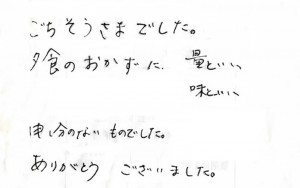 ごちそうさまでした。
夕食のおかずに、量といい、
味といい、
申し分のないものでした。
ありがとう ございました。